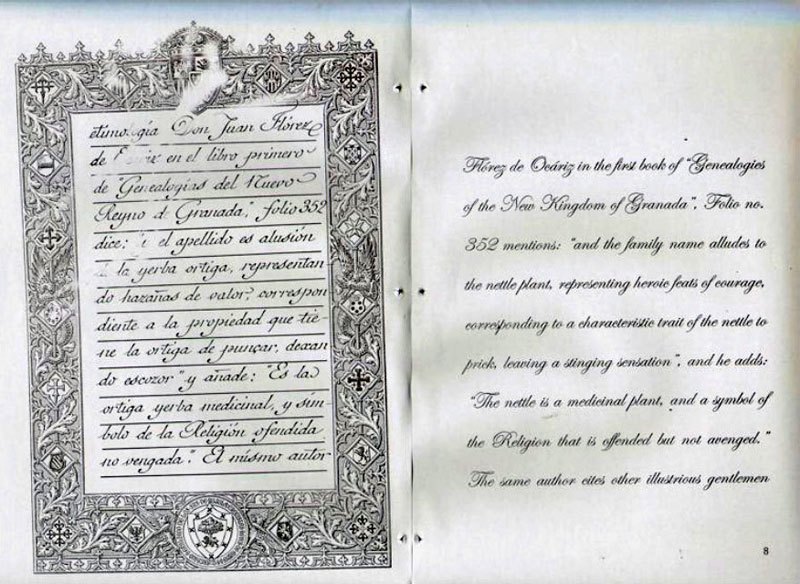 etimología Don Juan Flórez
de en el libro primero
de "Genealogías del Nuevo
Reyno d Granada", folio 352
dice: el apellido es alusión
la yerba ortiga, representan
do hazañas de valor, correspon
diente a la propiedad que tie-
ne la ortiga de punçar, dexan
do escozor" y añade: "Es la
ortiga yerba medicinal, y sím
bolo de la Religión ofendida
no vengada". El mismo autor
Flórez de Ocáriz in the first book of "Genealogies
of the New Kingdom of Granada". Folio no.
352 mentions: "and the family name alludes to
the nettle plant, representing heroic feats of courage,
corresponding to a characteristic trait of the nettle to
prick, leaving a stinging sensation", and he adds:
"The nettle is a medicinal plant, and a symbol of
the Religion that is offended but not avenged."
The same author cites other illustrious gentlemen
8